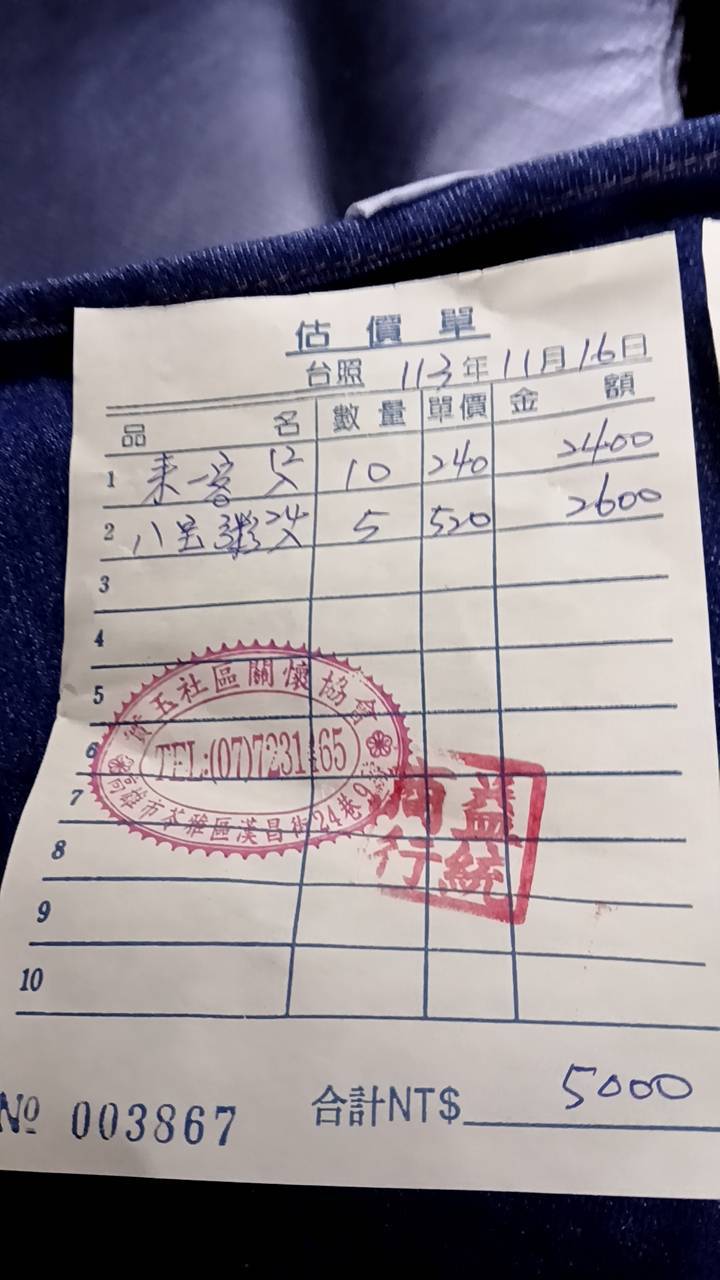 估價單
台照 113年11月16日
品名 數量 單價 金額
1 來一客 12入 10 240 2400
2 八宝粥24入 5 520 2600
3
4
5
6
7
8
9
10
五社區關懷協會
TEL:(07)7231 65
高雄市苓雅區漢昌街24巷9
益統商行
合計NT$ 5000
Nº 003867